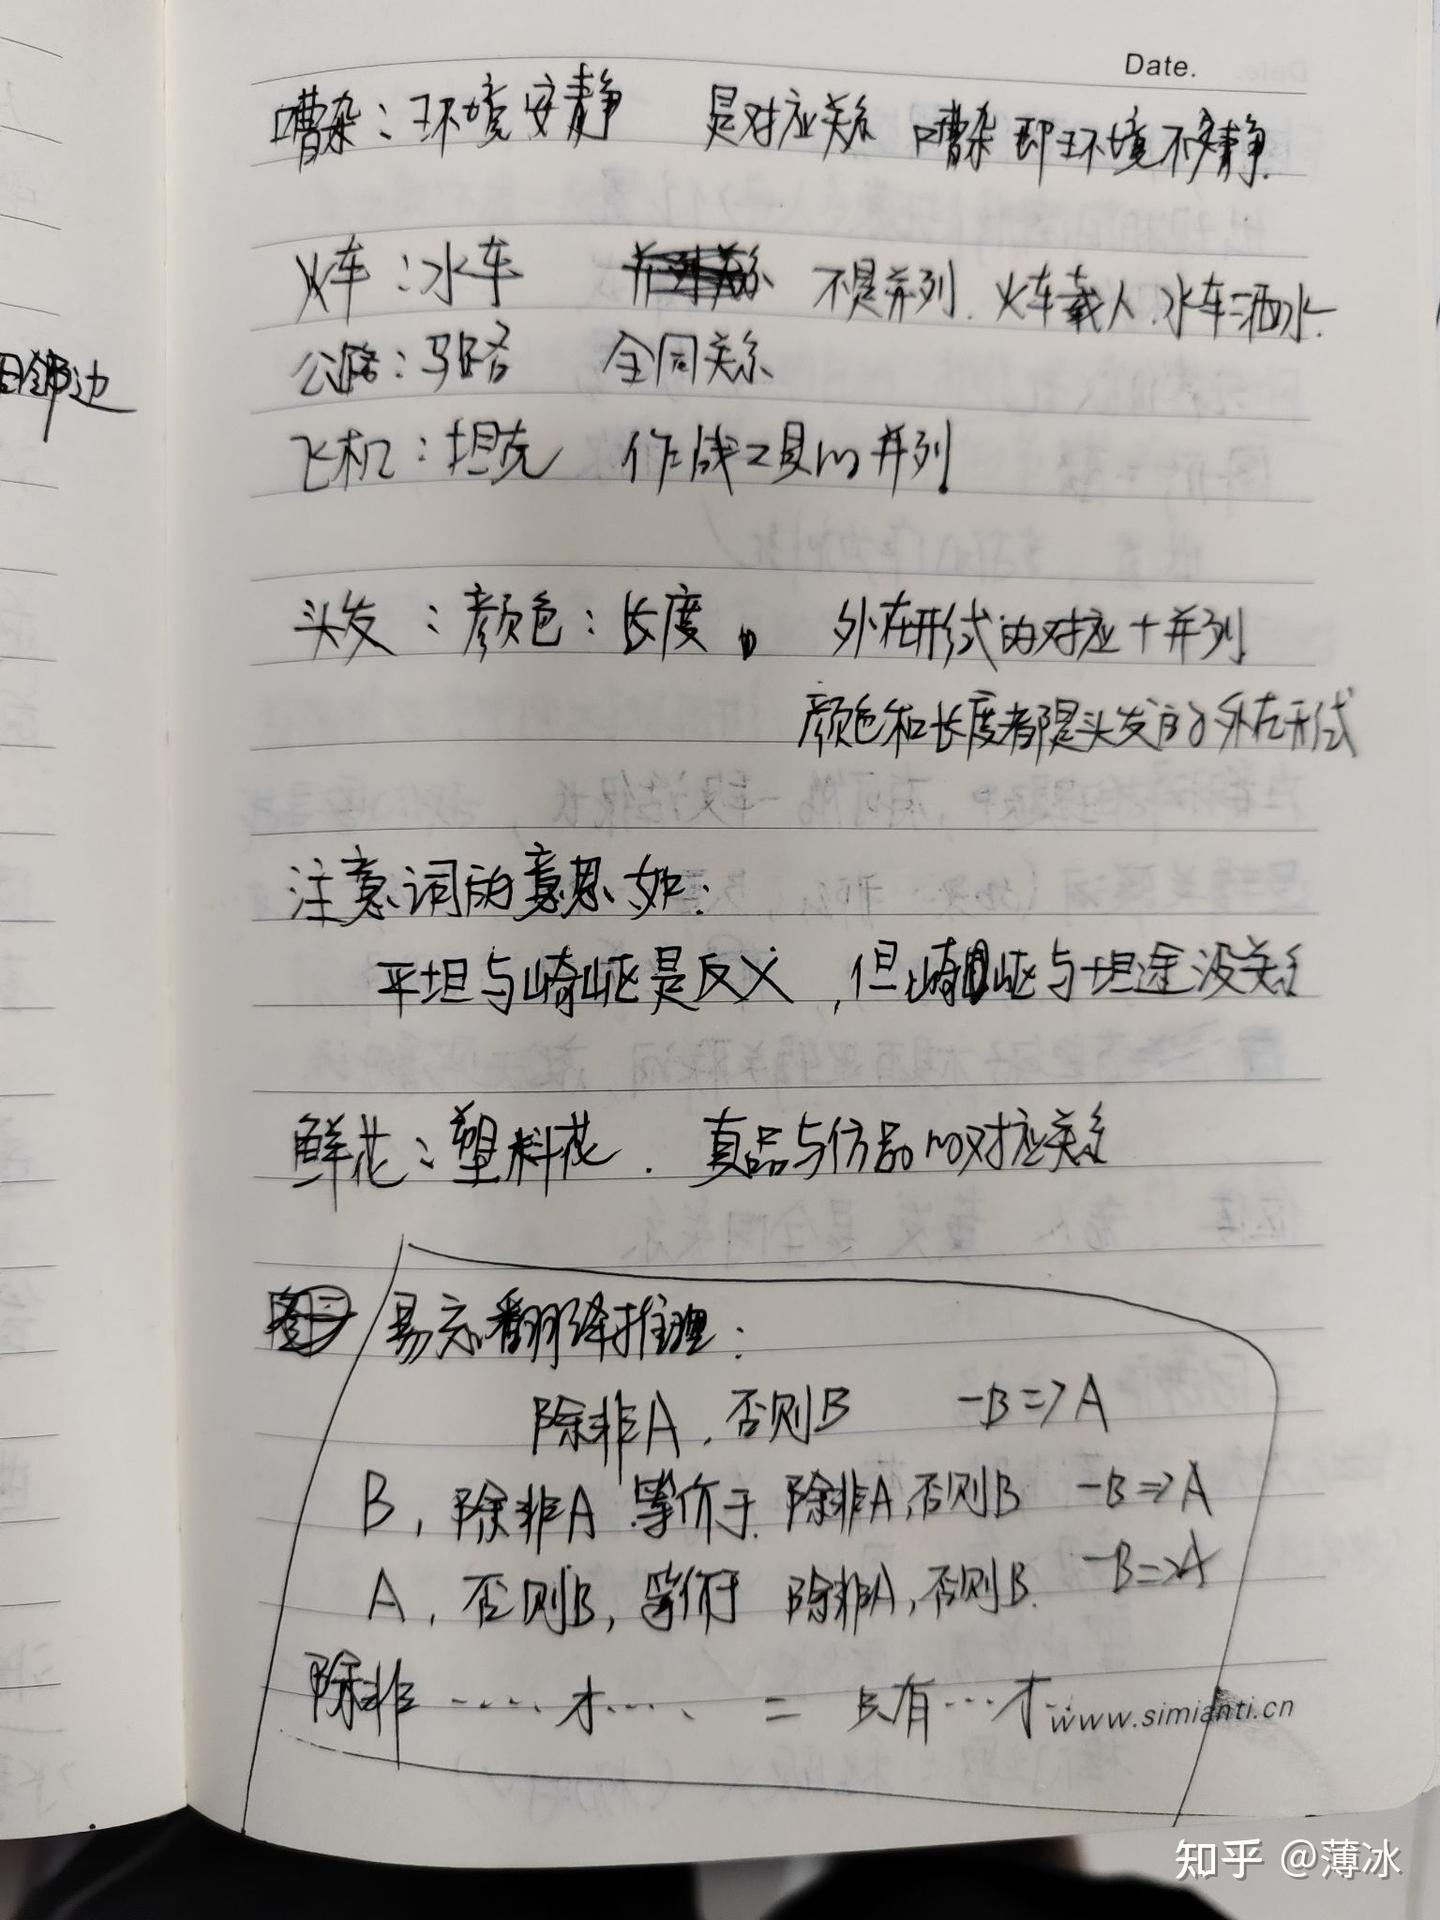 Date.
嘈杂：环境安静 是对应关系 嘈杂即环境不安静.
火车：水车 不是并列. 火车载人. 水车洒水.
公路：马路 全同关系
飞机：坦克 作战工具的并列.
头发：颜色：长度. 外在形式的对应+并列
颜色和长度都是头发的外在形式
注意词的意思. 如：
平坦与崎岖是反义, 但崎岖与坦途没关系
鲜花：塑料花. 真品与仿品的对应关系
易忘翻译推理：
除非A, 否则B -B=>A
B, 除非A 等价于 除非A, 否则B -B=>A
A, 否则B, 等价于 除非A, 否则B. -B=>A
除非……才…… = 只有…才…
www.simianti.cn
邻边
知乎 @薄冰